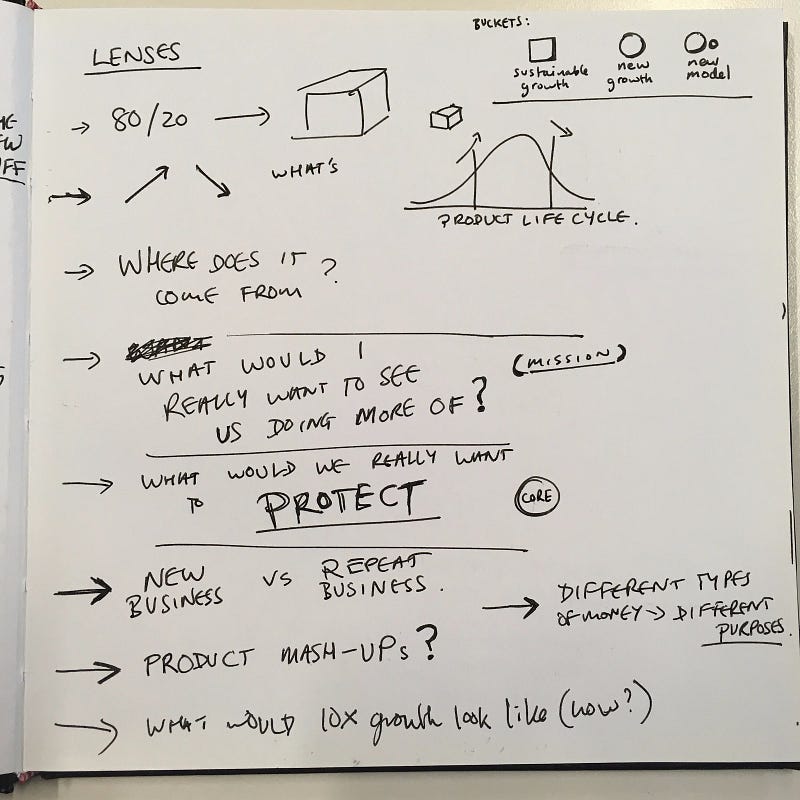 LENSES
BUCKETS:
sustainable
growth
new
growth
new
model
→ 80/20 →
WHAT'S
PRODUCT LIFE CYCLE.
→ WHERE DOES IT
COME FROM ?
→ WHAT WOULD I
REALLY WANT TO SEE
US DOING MORE OF?
(MISSION)
→ WHAT WOULD WE REALLY WANT
TO PROTECT
CORE
→ NEW
BUSINESS
VS
REPEAT
BUSINESS.
→ DIFFERENT TYPES
OF MONEY → DIFFERENT
PURPOSES.
→ PRODUCT MASH-UPs?
→ WHAT WOULD 10X growth look like (how?)